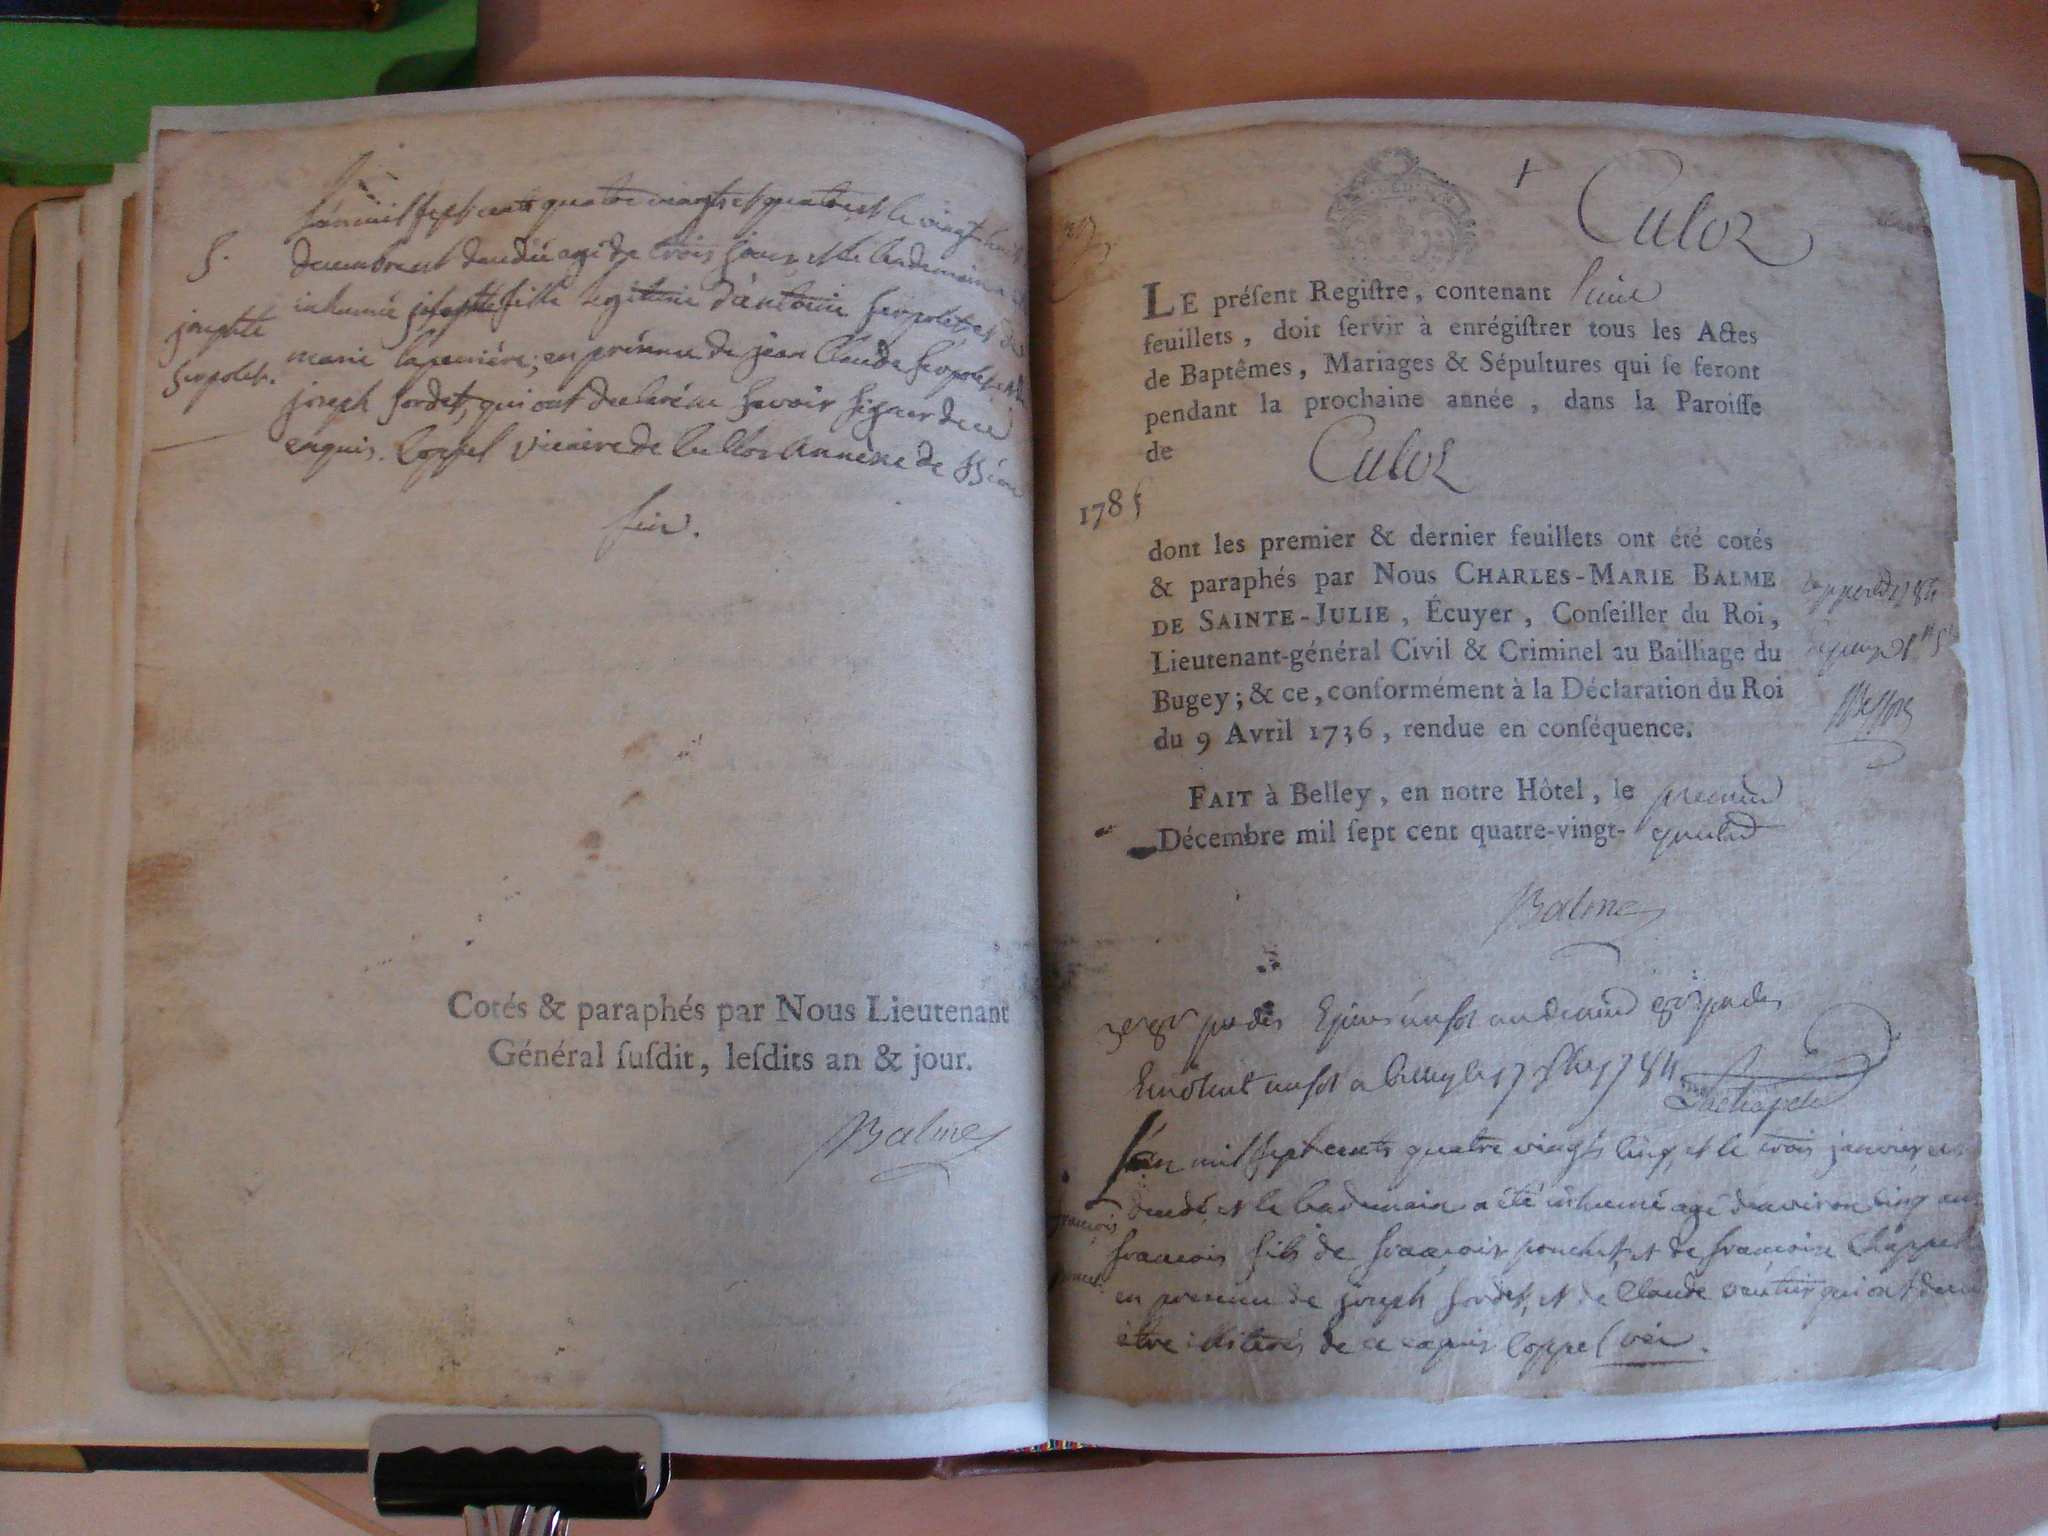 L'an mil sept cents quatre vingts et quatre et le vingt huit
S.
decembre est decedé agé de trois jours et le lendemain a
inhumé josephte fille legitime d'antoine serpolet et de
josephte
serpolet.
marie lapeniére; en présence de jean Claude serpolet et de
joseph sordet, qui ont declaré ne savoir signer de ce
enquis. Coppel vicaire de Culloz annexe de Béon
fin.
Cotés & paraphés par Nous Lieutenant
Général ſuſdit, leſdits an & jour.
Balme
Culoz
LE préſent Regiſtre, contenant
feuillets, doit ſervir à enrégiſtrer tous les Actes
de Baptêmes, Mariages & Sépultures qui ſe feront
pendant la prochaine année, dans la Paroiſſe
de Culoz
1785
dont les premier & dernier feuillets ont été cotés
& paraphés par Nous CHARLES-MARIE BALME
DE SAINTE-JULIE, Écuyer, Conſeiller du Roi,
Lieutenant-général Civil & Criminel au Bailliage du
Bugey; & ce, conformément à la Déclaration du Roi
du 9 Avril 1736, rendue en conſéquence.
FAIT à Belley, en notre Hôtel, le premier
Décembre mil ſept cent quatre-vingt-quatre
Balme
L'an mil sept cents quatre vingts cinq, et le trois janvier est
decedé et le lendemain a été inhumé agé d'environ cinq ans
françois
françois fils de françois ponchet, et de françoise Chappel
en presence de joseph sordet, et de Claude vautier qui ont declaré
être illiterés de ce enquis Coppel vic.